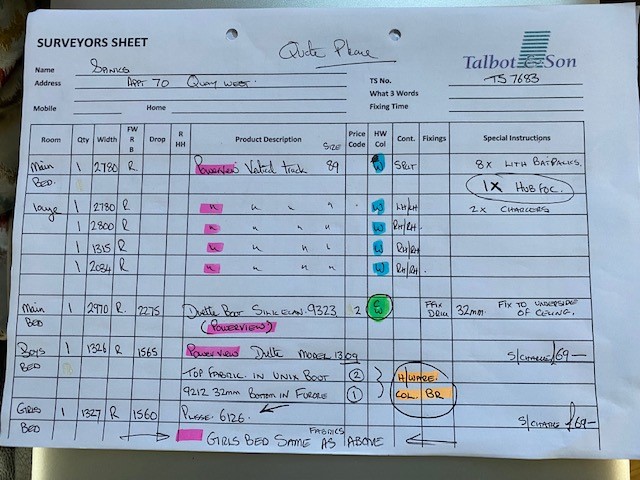 SURVEYORS SHEET
Quote Please
Talbot & Son
Name SPINKS
Address APPT 70 QUAY WEST.
TS No. TS 7683
What 3 Words
Mobile Home Fixing Time
Room Qty Width FW R B Drop R HH Product Description SIZE Price Code HW Col Cont. Fixings Special Instructions
Main 1 2780 R. Powerview Vertical track 89 W SPLIT 8X WITH BATPACKS.
BED. 1X HUB FOC.
1 2780 R " " " " W LH/LH 2X CHARGERS
1 2800 R " " " " W RH/RH
1 1315 R " " " " W RH/RH
1 2084 R " " " " W RH/RH.
Main 1 2970 R. 2275 Duette Boot SILK ELAN. 9323 2 W FFIX 32mm FIX TO UNDERSIDE
BED (POWERVIEW) DRILL OF CEILING.
Boys 1 1326 R 1565 Powerview Duette MODEL 1309 S/CHARGE £69-
BED TOP FABRIC. IN UNIX BOUT 2 H/WARE.
9212 32mm BOTTOM IN FURORE 1 COL. BR
GIRLS 1 1327 R 1560 PLEASE. 6126. S/CHARGE £69-
BED GIRLS BED FABRICS SAME AS ABOVE